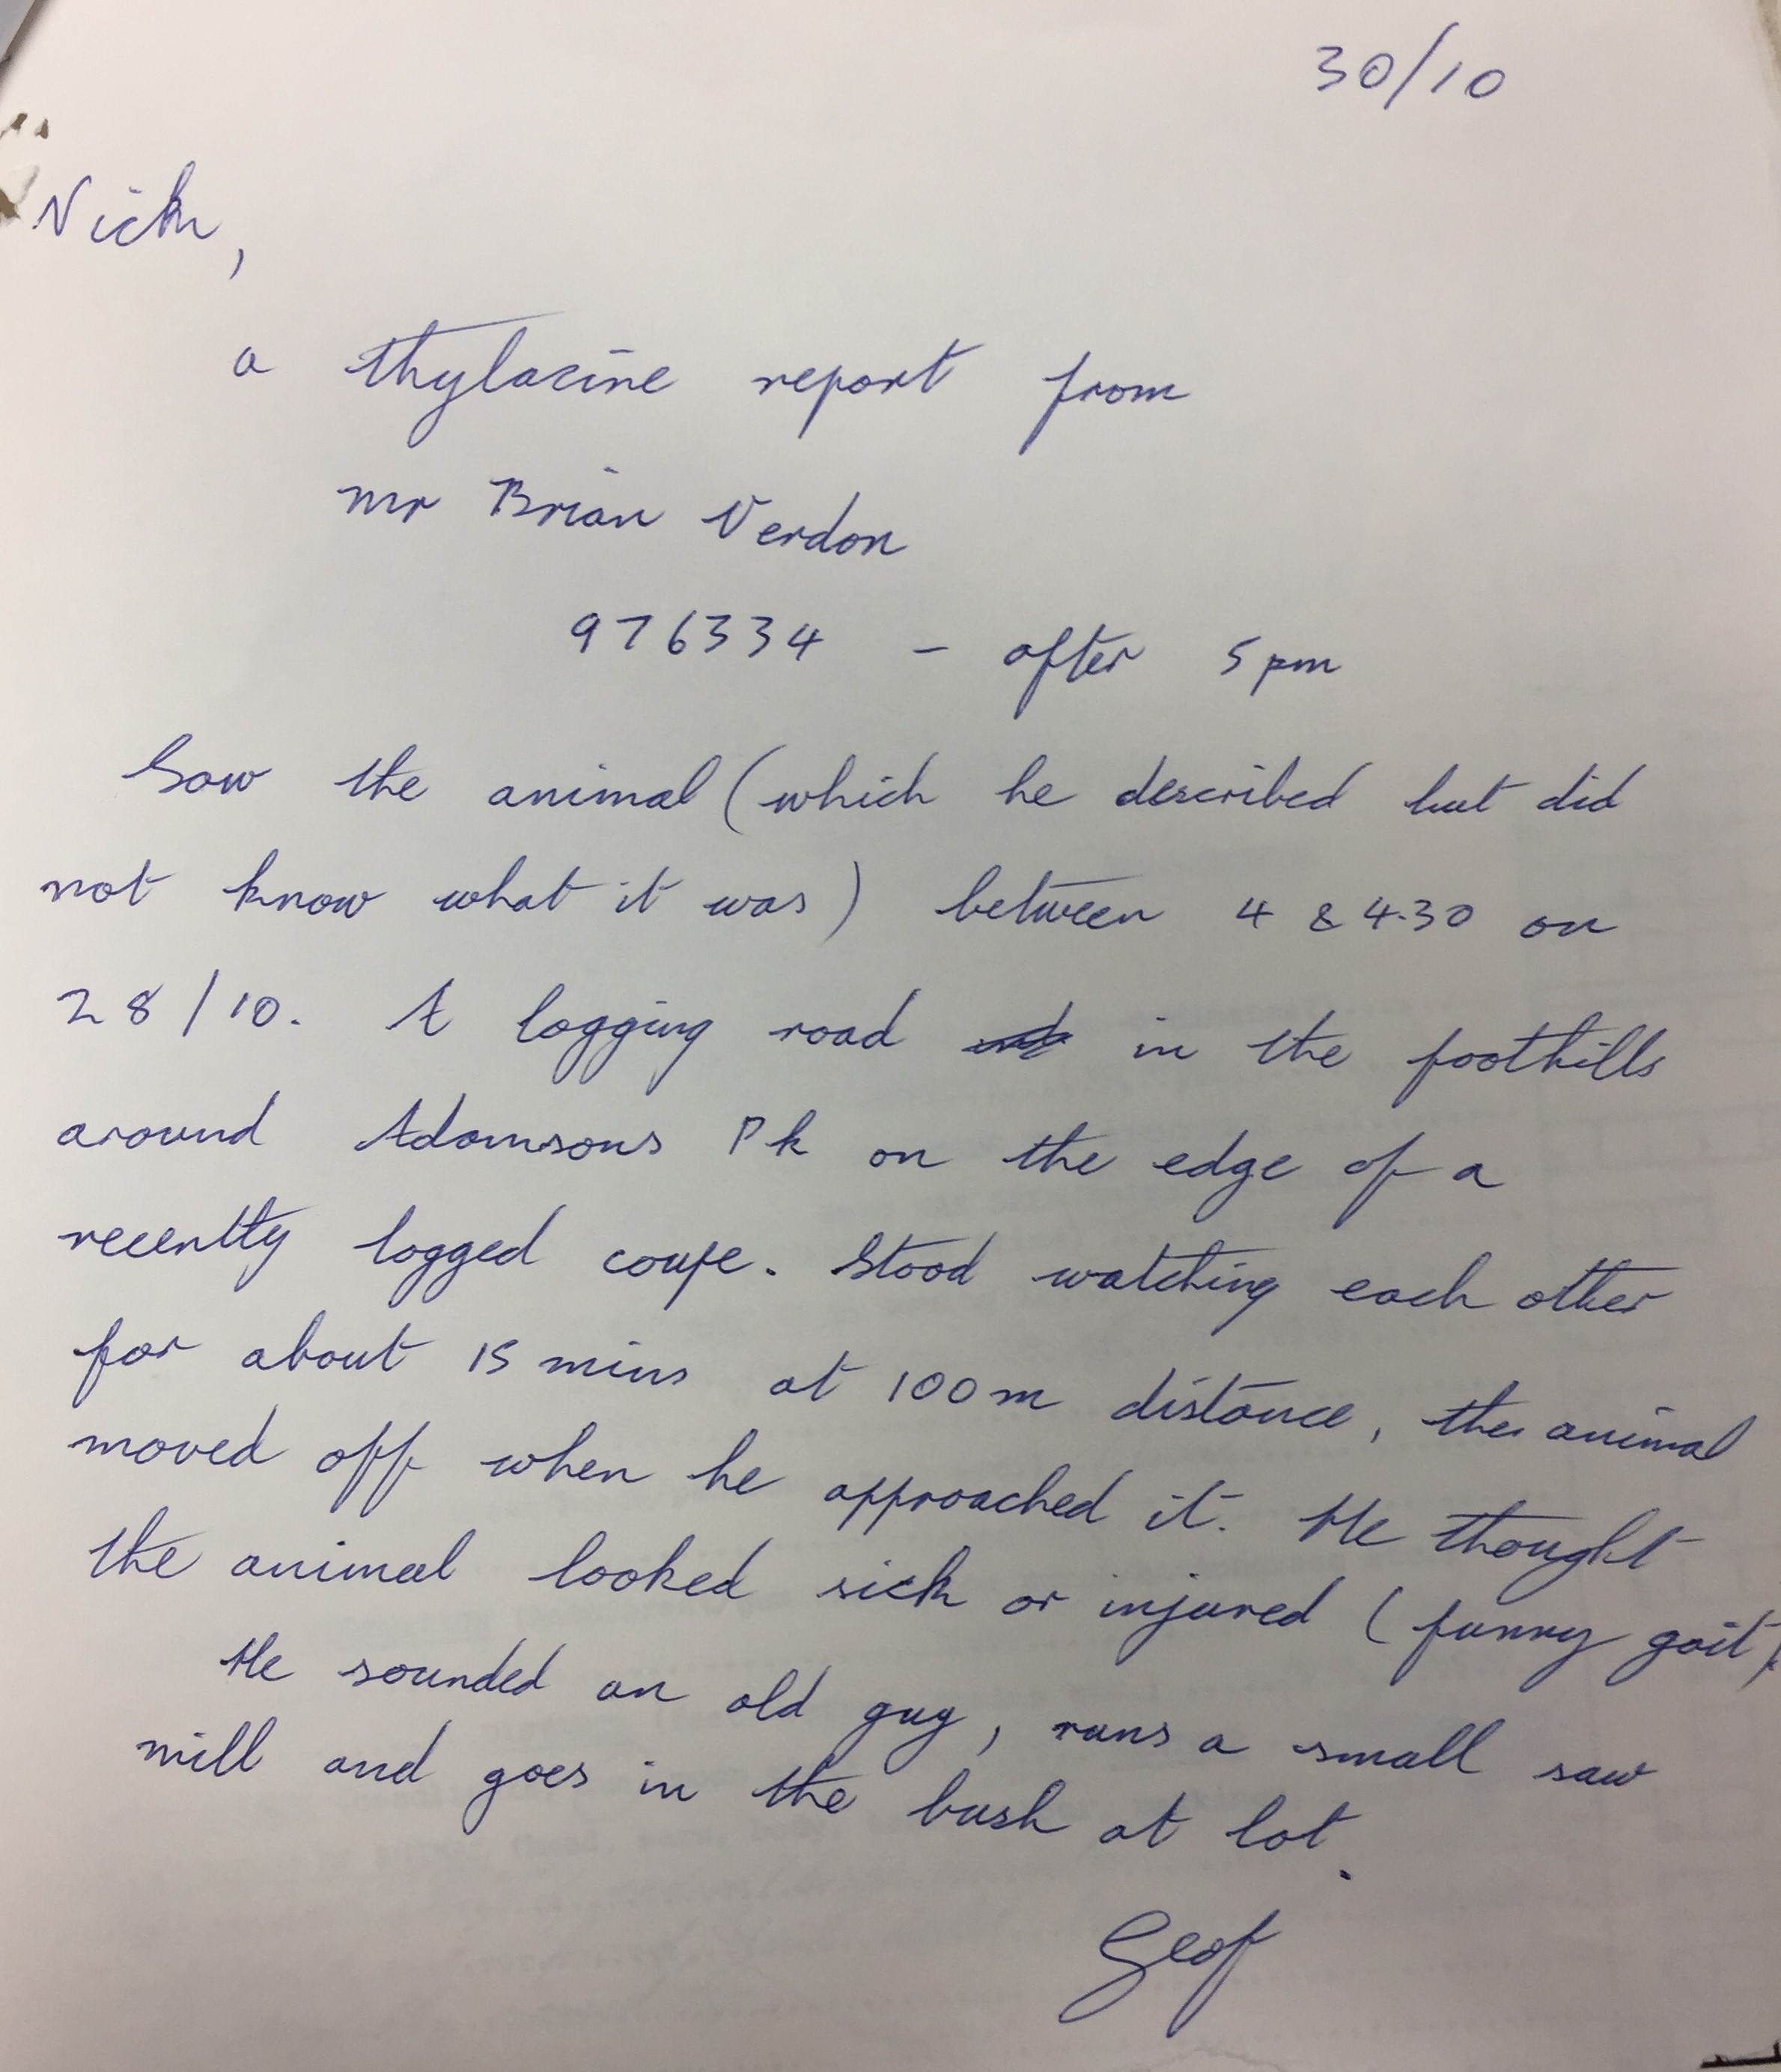 30/10
Nick,
a thylacine report from
Mr Brian Verdon
976334 - after 5pm
Saw the animal (which he described but did
not know what it was) between 4 & 4.30 on
28/10. A logging road in the foothills
around Adamsons Pk on the edge of a
recently logged coupe. Stood watching each other
for about 15 mins at 100m distance, the animal
moved off when he approached it. He thought
the animal looked sick or injured (funny gait).
He sounded an old guy, runs a small saw
mill and goes in the bush at lot.
Geof